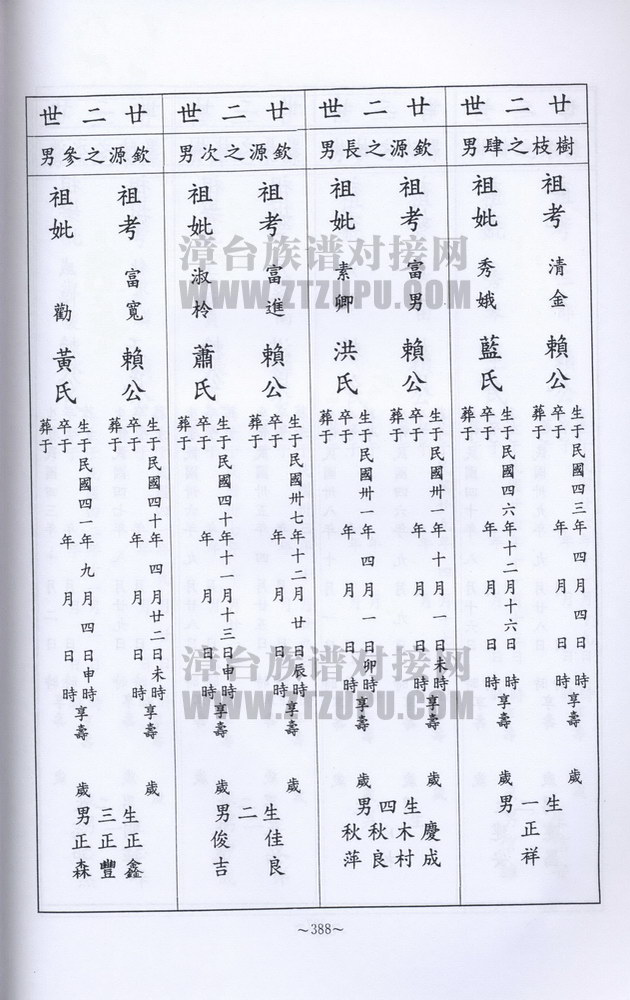 廿二世
樹枝之肆男
祖考 清金 賴公
生于民國四三年四月四日 時
卒于 年 月 日 享壽 歲
祖妣 秀娥 藍氏
生于民國四六年十二月十六日 時
卒于 年 月 日 時享壽 歲
葬于
生一男
正祥
廿二世
欽源之長男
祖考 富男 賴公
生于民國卅一年十月一日未時
卒于 年 月 日 時享壽 歲
葬于
祖妣 素卿 洪氏
生于民國卅一年四月一日卯時
卒于 年 月 日 時享壽 歲
葬于
生四男
慶成
木村
秋良
秋萍
廿二世
欽源之次男
祖考 富進 賴公
生于民國卅七年十二月廿日辰時
卒于 年 月 日 時享壽 歲
葬于
祖妣 淑柃 蕭氏
生于民國四十年十一月十三日申時
卒于 年 月 日 時享壽 歲
葬于
生二男
佳良
俊吉
廿二世
欽源之參男
祖考 富寬 賴公
生于民國四十年四月廿二日未時
卒于 年 月 日 時享壽 歲
葬于
祖妣 勸 黃氏
生于民國四一年九月四日申時
卒于 年 月 日 時享壽 歲
葬于
生三男
正鑫
正豐
正森
~388~
漳台族谱对接网
WWW.ZTZUPU.COM
漳台族谱对接网
WWW.ZTZUPU.COM